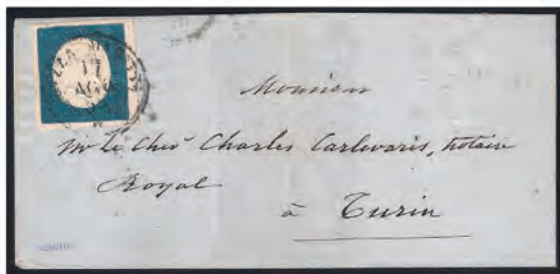 17
AGO
Monsieur
Mr Le Chev Charles Carlevaris, notaire
Royal
à Turin